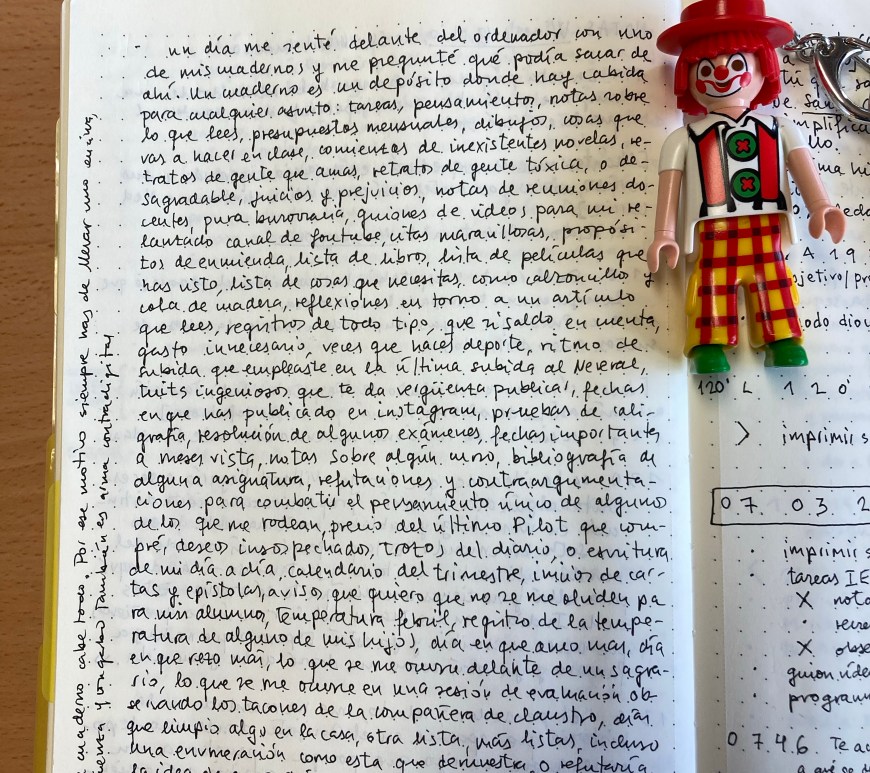 un día me senté delante del ordenador con uno
de mis cuadernos y me pregunté qué podía sacar de
ahí. Un cuaderno es un depósito donde hay cabida
para cualquier asunto: tareas, pensamientos, notas sobre
lo que lees, presupuestos mensuales, dibujos, cosas que
vas a hacer en clase, comienzos de inexistentes novelas, re-
tratos de gente que amas, retratos de gente tóxica, o de-
sagradable, juicios y prejuicios, notas de reuniones do-
centes, pura burocracia, guiones de vídeos para mi re-
lautado canal de Youtube, citas maravillosas, propósi-
tos de enmienda, lista de libros, lista de películas que
has visto, lista de cosas que necesitas, como calzoncillos y
cola de madera, reflexiones en torno a un artículo
que lees, registros de todo tipo, que si saldo en cuenta,
gasto innecesario, veces que haces deporte, ritmo de
subida que empleaste en la última subida al Neveral,
tuits ingeniosos que te da vergüenza publicar, fechas
en que has publicado en instagram, pruebas de cali-
grafía, resolución de algunos exámenes, fechas importantes
a meses vista, notas sobre algún curso, bibliografía de
alguna asignatura, refutaciones y contraargumenta-
ciones para combatir el pensamiento único de algunos
de los que me rodean, precio del último Pilot que com-
pré, deseos insospechados, trozos del diario, o escritura
de mi día a día, calendario del trimestre, inicios de car-
tas y epístolas, avisos que quiero que no se me olviden pa
ra mis alumnos, temperatura febril, registro de la tempe-
ratura de alguno de mis hijos, día en que amo más, día
en que rezo más, lo que se me ocurre delante de un sagra-
rio, lo que se me ocurre en una sesión de evaluación ob-
servando los tacones de la compañera de claustro, días
que limpio algo en la casa, otra lista, más listas, incluso
una enumeración como esta que demuestra o refutaría
la idea de
cuaderno cabe todo. Por ese motivo siempre has de llevar uno encima
también es arma contradigital
120' L 1 2 0'
> imprimir s
07. 03 2
· imprimir s
· tareas IE
X nota
·
X obse
· guion víde
· program
0.7.4.6. Te a